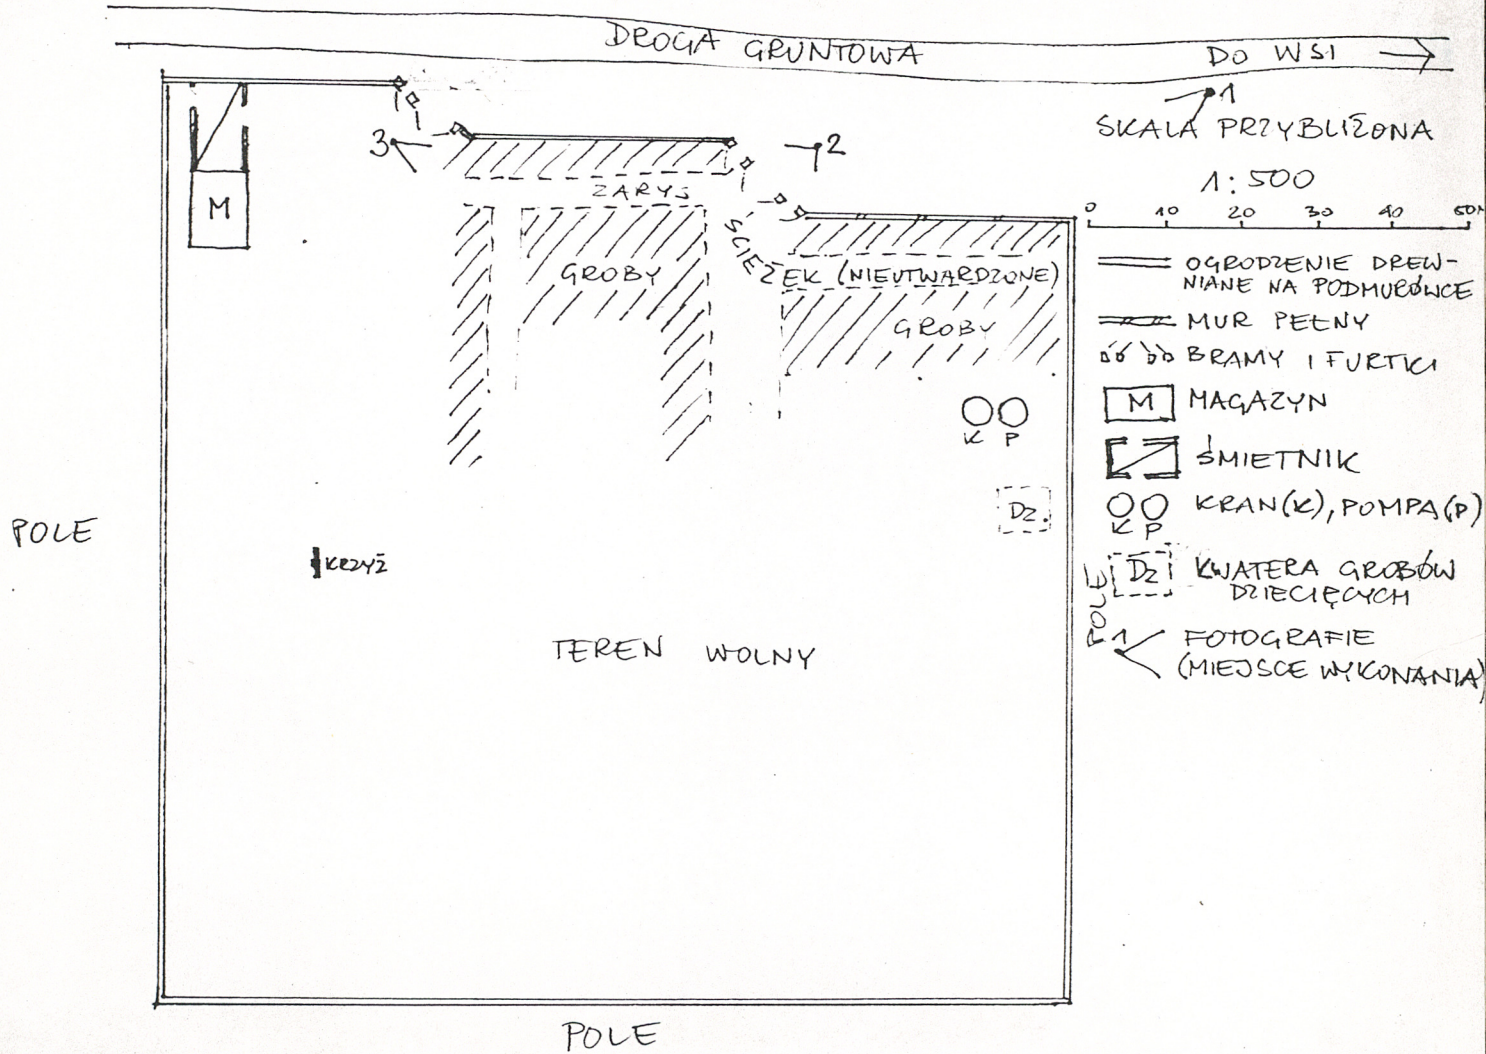 DROGA GRUNTOWA
DO WSI
1
SKALA PRZYBLIŻONA
1:500
0 10 20 30 40 50M
3
2
M
ZARYS
ŚCIEŻEK (NIEUTWARDZONE)
GROBY
GROBY
K P
Dz.
POLE
KRZYŻ
TEREN WOLNY
POLE
POLE
OGRODZENIE DREW-
NIANE NA PODMURÓWCE
MUR PEŁNY
BRAMY I FURTKI
M MAGAZYN
ŚMIETNIK
K P KRAN(K), POMPA(P)
Dz KWATERA GROBÓW
DZIECIĘCYCH
1 FOTOGRAFIE
(MIEJSCE WYKONANIA)